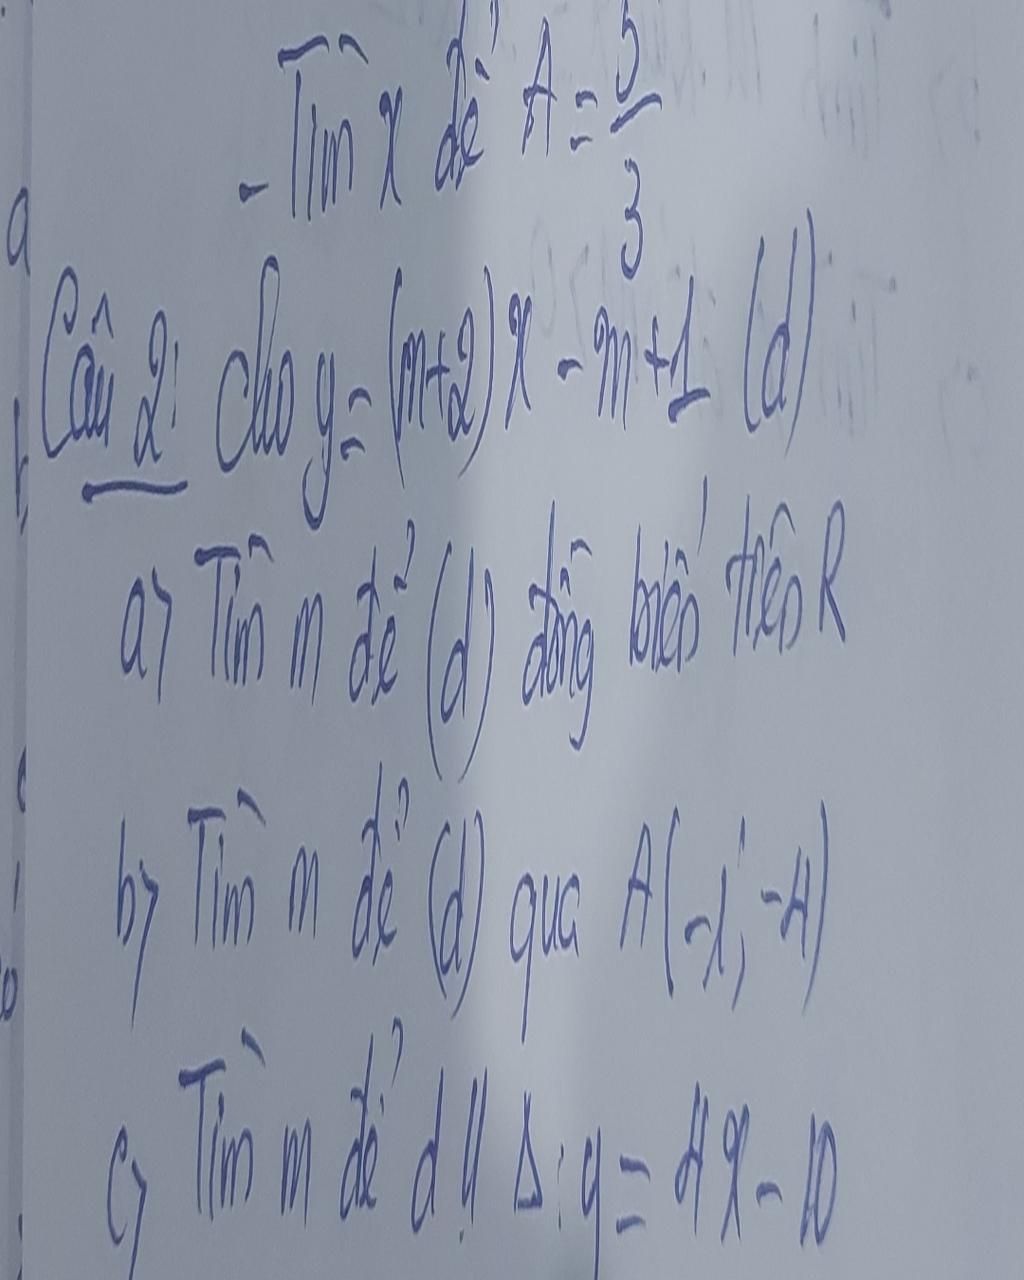 - Tìm x để A = 5/3
Câu 2: cho y = (m+2)x - m+1 (d)
a> Tìm m để (d) đồng biến trên R
b> Tìm m để (d) qua A(-1; -4)
c> Tìm m để d // Δ: y = 4x - 10